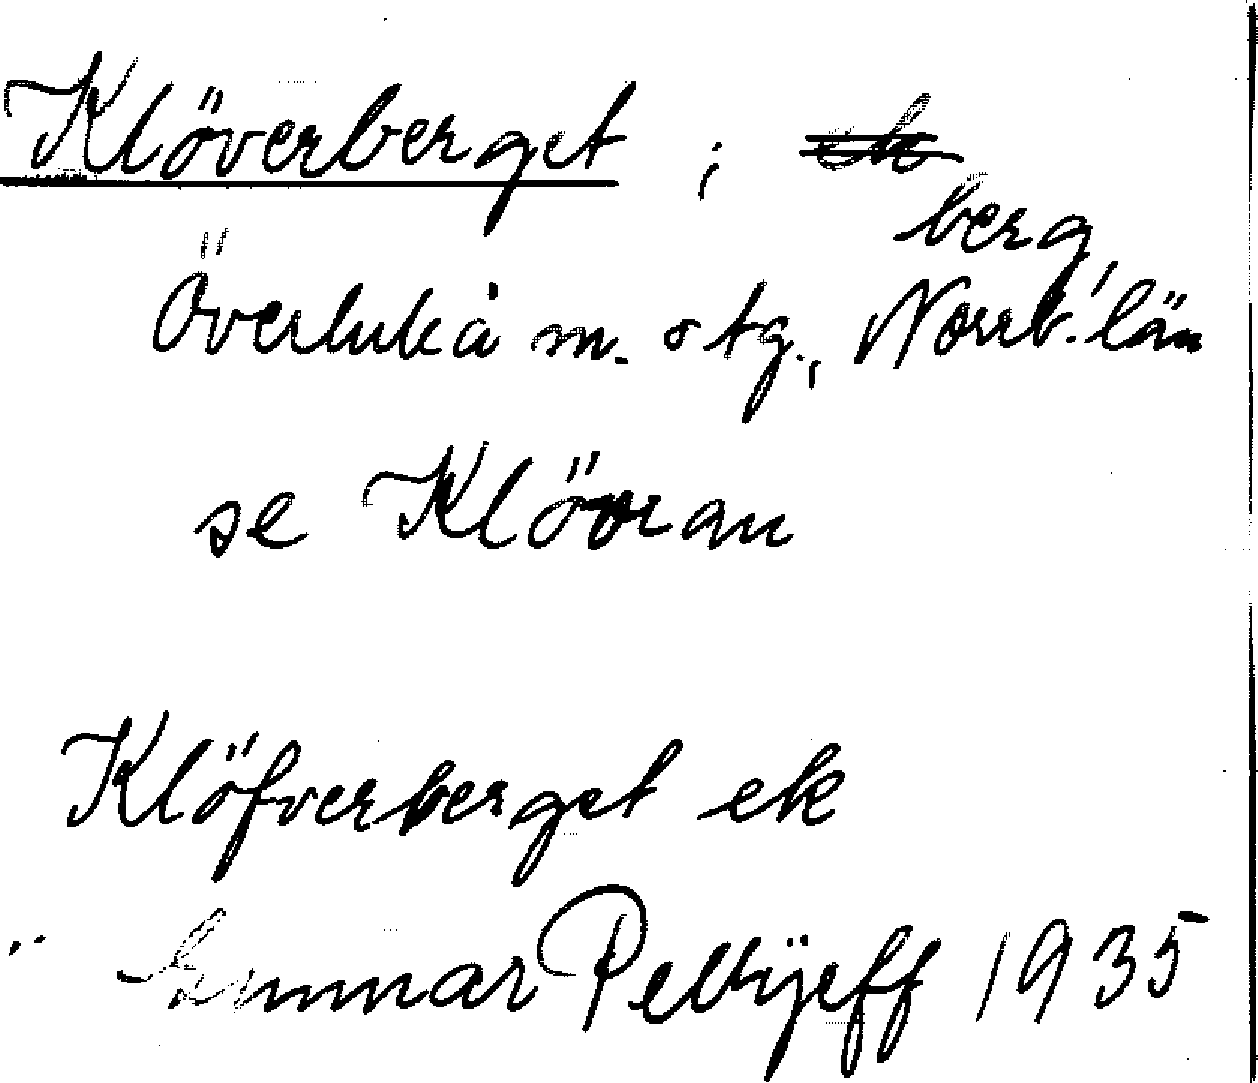 Klöverberget ; ek
berg,
Överluleå m. o tg., Norrb. län
se Klövran
Klöfverberget ek
Gunnar Pellijeff 1935